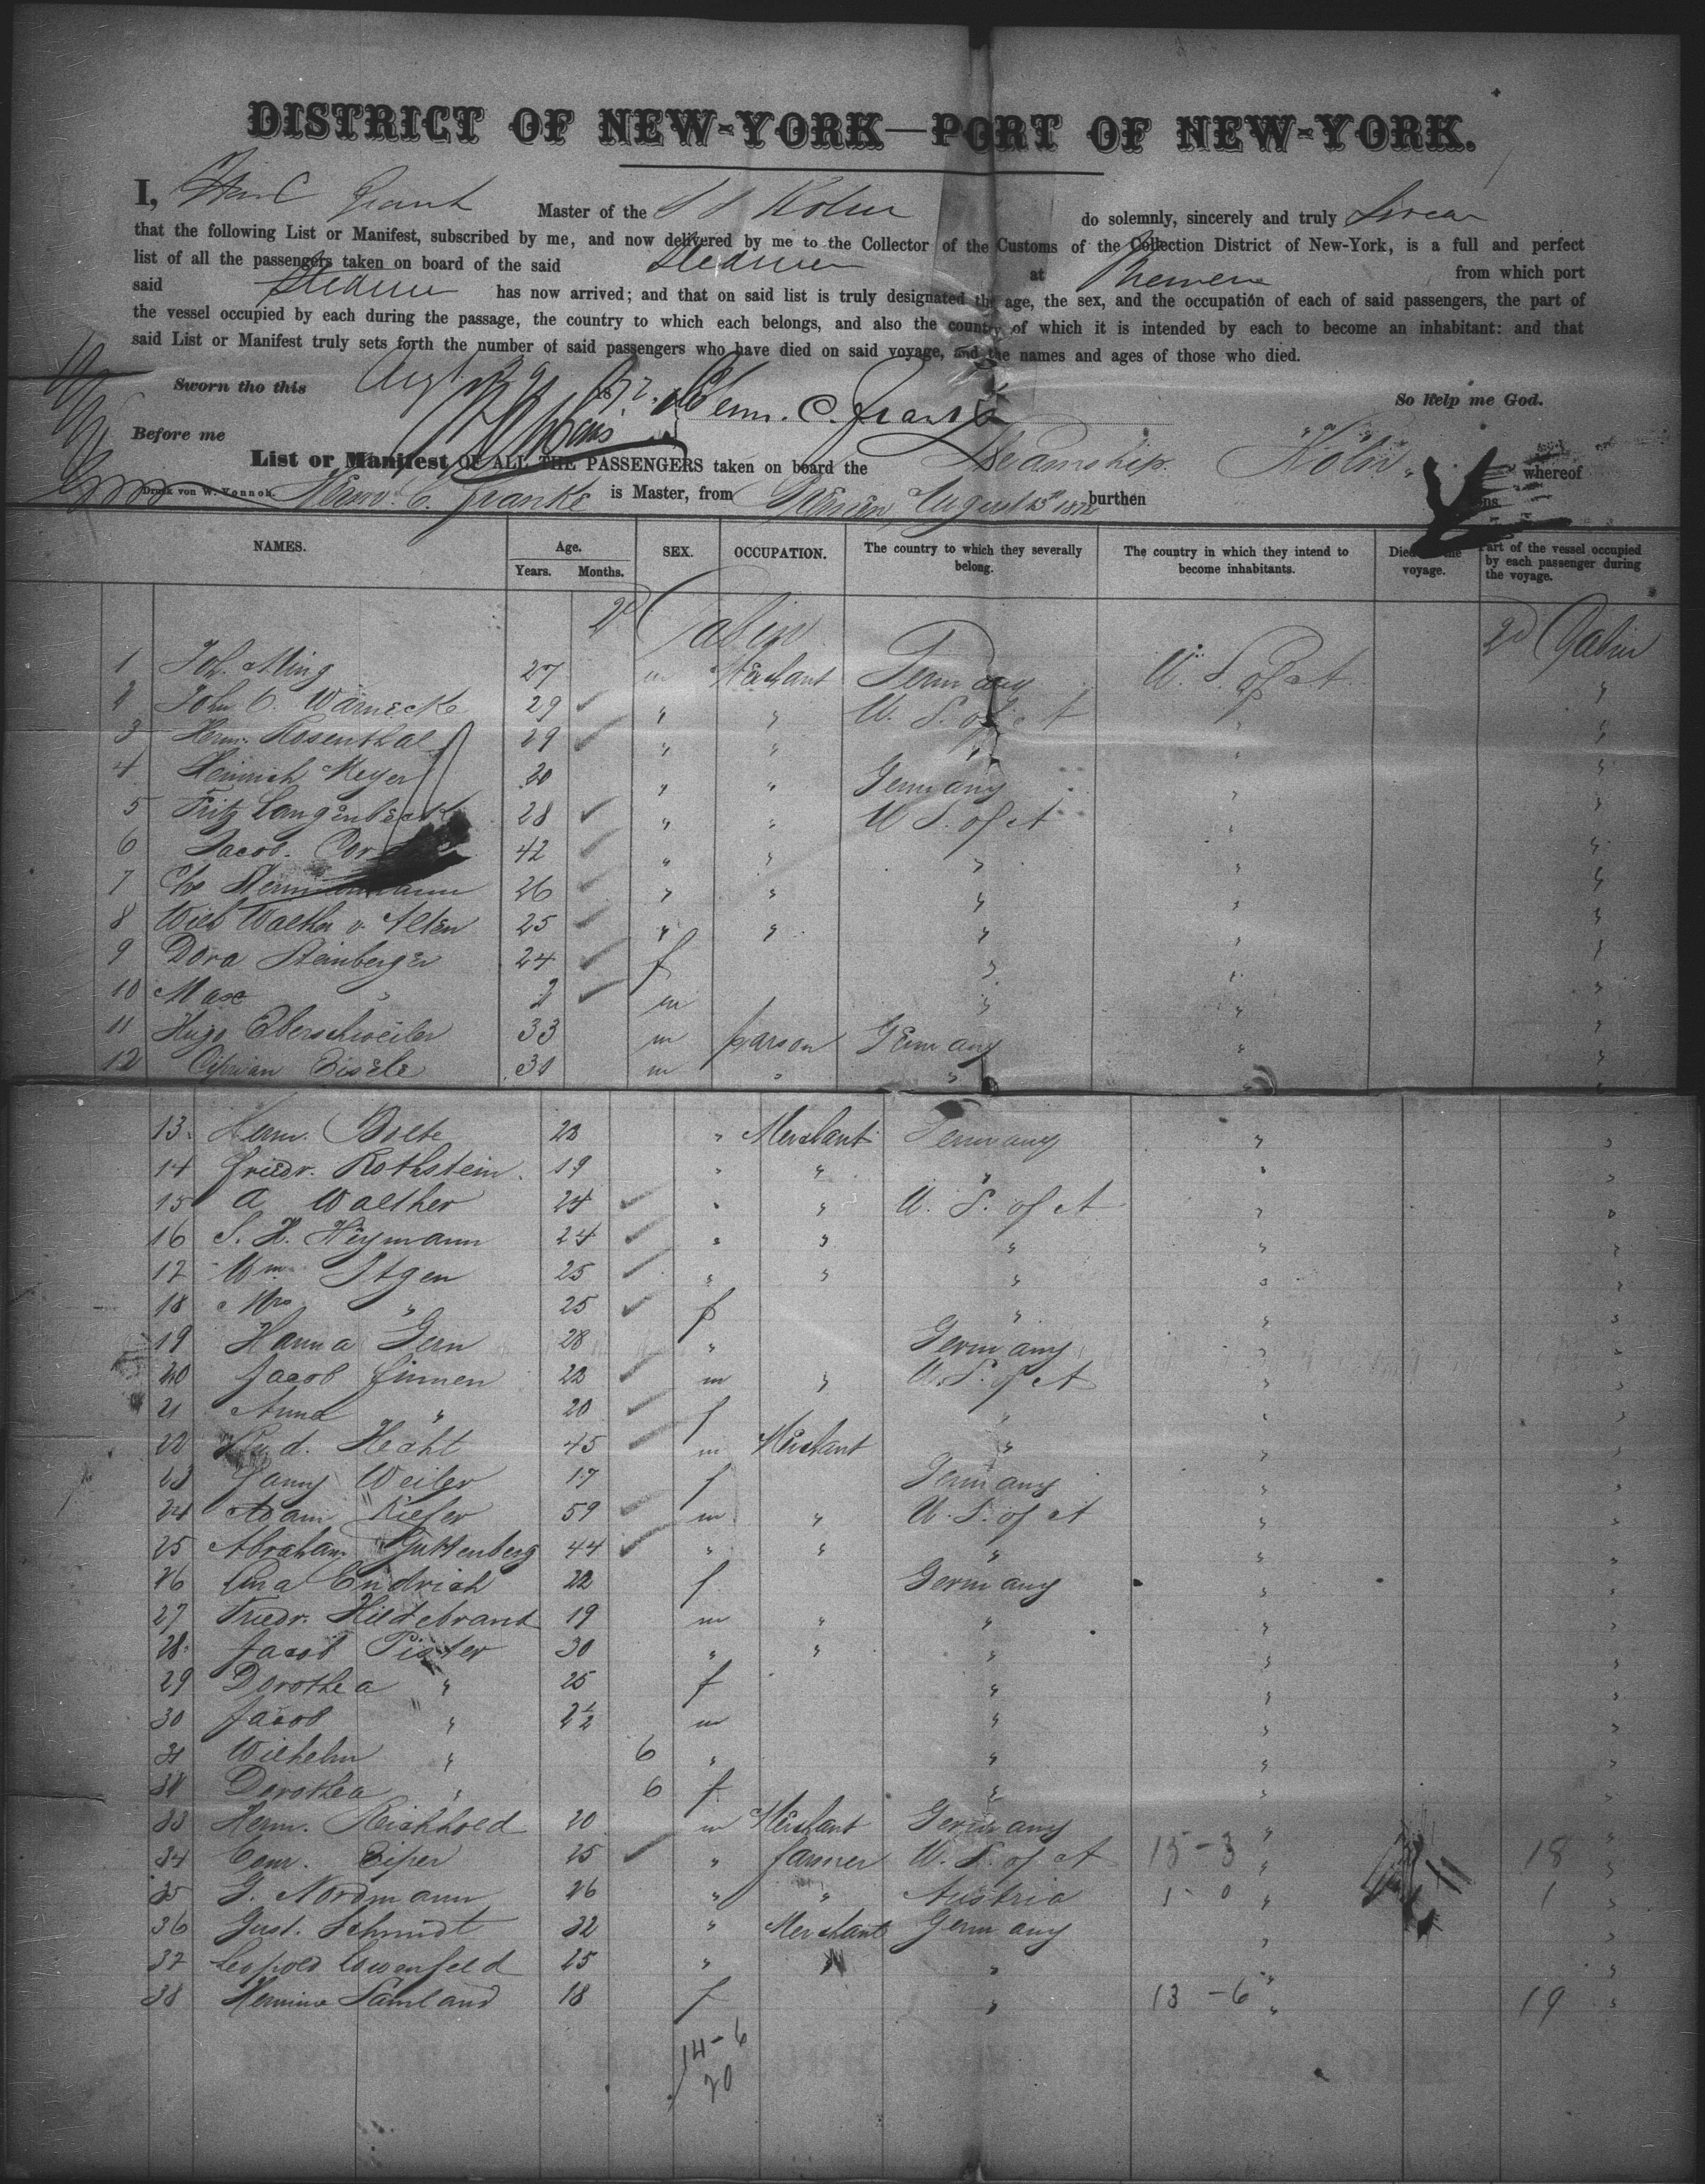 DISTRICT OF NEW-YORK—PORT OF NEW-YORK.
I, Master of the S S Köln do solemnly, sincerely and truly swear
that the following List or Manifest, subscribed by me, and now delivered by me to the Collector of the Customs of the Collection District of New-York, is a full and perfect
list of all the passengers taken on board of the said Steamer at Bremen from which port
said Steamer has now arrived; and that on said list is truly designated the age, the sex, and the occupation of each of said passengers, the part of
the vessel occupied by each during the passage, the country to which each belongs, and also the country of which it is intended by each to become an inhabitant: and that
said List or Manifest truly sets forth the number of said passengers who have died on said voyage, and the names and ages of those who died.
Sworn tho this Augt. 29 1872. Herm. C. Franke So help me God.
Before me
List or Manifest OF ALL THE PASSENGERS taken on board the Steamship "Köln" whereof
Druck von W. Vonnoh. Herm. C. Franke is Master, from Bremen, August 15th 1872 burthen
NAMES. Age. Years. Months. SEX. OCCUPATION. The country to which they severally belong. The country in which they intend to become inhabitants. Died on the voyage. Part of the vessel occupied by each passenger during the voyage.
2d Cabin 2d Cabin
1 Joh. Ming 27 m Merchant Germany U. S. of A. "
2 John C. Warnecke 29 " " U. S. of A " "
3 Herm. Rosenthal 29 " " " " "
4 Heinrich Meyer 30 " " Germany " "
5 Fritz Langenbeck 28 " " U S. of A " "
6 Jacob. 42 " " " " "
7 26 " " " " "
8 Wilh Walther v. Alten 25 " " " " "
9 Dora Steinberger 24 f " " "
10 Max " 2 m " " "
11 Hugo Eberschweiler 33 m parson Germany " "
12 Ciprian Eisele 31 m " " " "
13. Herm. Bolte 23 " Merchant Germany " "
14 Friedr. Rothstein. 19 " " " " "
15 A. Walther 24 " " U. S. of A " "
16 S. H. Heymann 24 " " " " "
17 Wm. Itgen 25 " " " " "
18 Mrs " 25 f " " "
19 Hanna Gern 28 " Germany " "
20 Jacob Finnen 22 m " U. S. of A " "
21 Anna " 20 f " " "
22 Rud. Hecht 45 m Merchant " " "
23 Fanny Weiler 17 f Germany " "
24 Adam Kiefer 59 m " U. S. of A " "
25 Abraham Guttenberg 44 " " " " "
26 Lina Endrich 22 f Germany " "
27 Friedr. Hildebrant 19 m " " " "
28. Jacob Pister 30 " " " " "
29 Dorothea " 25 f " " "
30 Jacob " 2½ m " " "
31 Wilhelm " 6 " " " "
32 Dorothea " 6 f " " "
33 Herm. Reichhold 20 m Merchant Germany " "
34 Conr. Eifer 25 " farmer U. S. of A 15-3 " 18 "
35 G. Nordmann 26 " " Austria 1-0 " 1 "
36 Gust. Schmidt 32 " Merchant Germany " "
37 Leopold Löwenfeld 25 " " " " "
38 Hermine Samland 18 f " 13-6 " 19 "
14-6
20